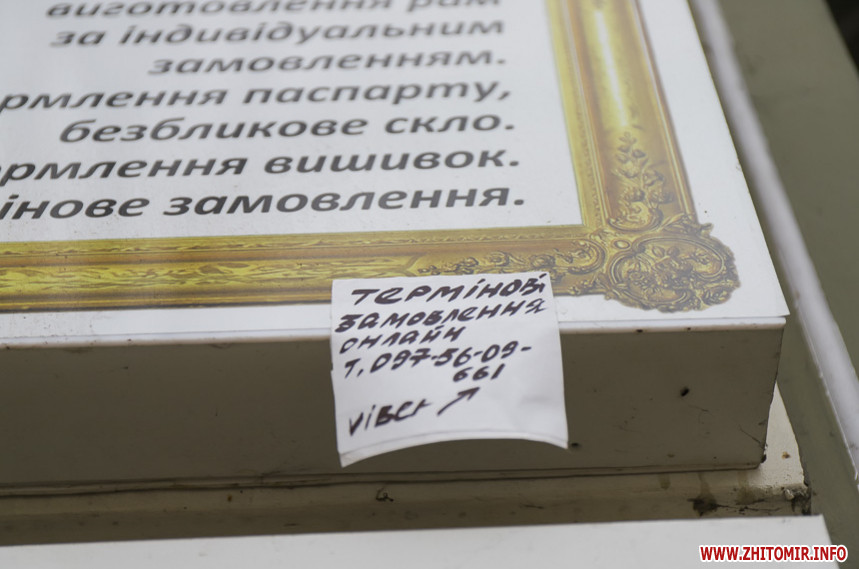 виготовлення рам
за індивідуальним
замовленням.
рмлення паспарту,
безбликове скло.
рмлення вишивок.
інове замовлення.
термінові
замовлення
онлайн
т. 097-56-09-
661
viber ↗
WWW.ZHITOMIR.INFO